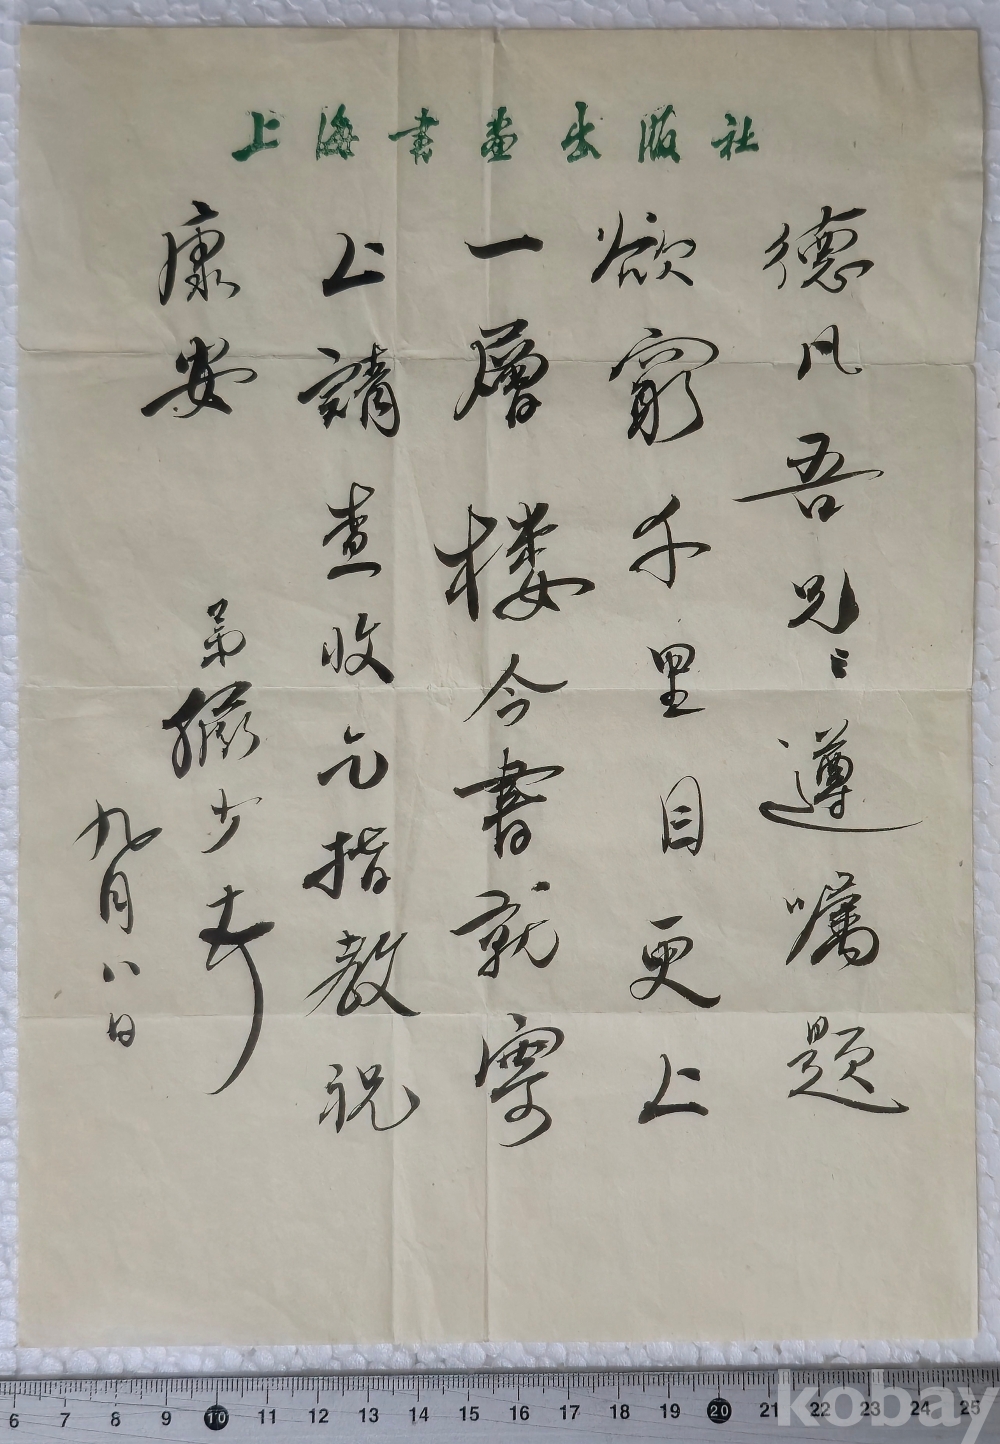 上海书画出版社
德凡吾兄：遵嘱题
欲窮千里目更上
一層楼今書就寄
上請查收乞指教祝
康安
弟張少
九月八日
6 7 8 9 10 11 12 13 14 15 16 17 18 19 20 21 22 23 24 25
kobay